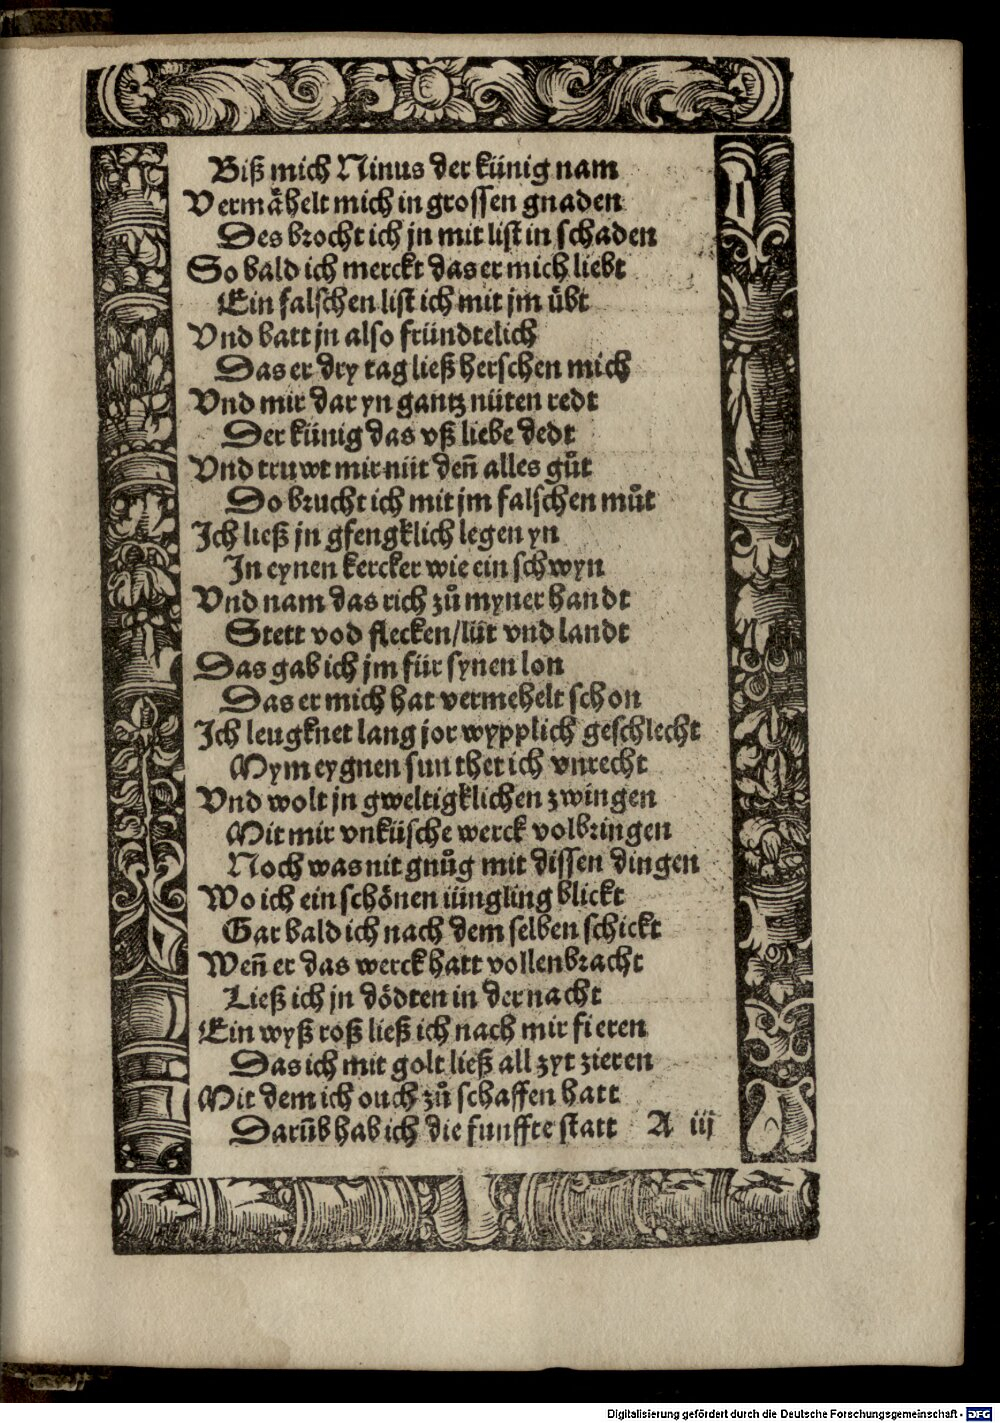 Biß mich Ninus der künig nam
Vermåhelt mich in grossen gnaden
Des brocht ich jn mit list in schaden
So bald ich merckt das er mich liebt
Ein falschen list ich mit jm übt
Vnd batt jn also fründtelich
Das er dry tag ließ herschen mich
Vnd mir dar yn gantz nüten redt
Der künig das vß liebe dedt
Vnd truwt mir nüt deñ alles gůt
Do brucht ich mit jm falschen můt
Ich ließ jn gfengklich legen yn
In eynen kercker wie ein schwyn
Vnd nam das rich zů myner handt
Stett vod flecken/lüt vnd landt
Das gab ich jm für synen lon
Das er mich hat vermehelt schon
Ich leugknet lang jor wypplich geschlecht
Mym eygnen sun thet ich vnrecht
Vnd wolt jn gweltigklichen zwingen
Mit mir vnküsche werck volbringen
Noch was nit gnůg mit dissen dingen
Wo ich ein schönen iüngling blickt
Gar bald ich nach dem selben schickt
Weñ er das werck hatt vollenbracht
Ließ ich jn dödten in der nacht
Ein wyß roß ließ ich nach mir fieren
Das ich mit golt ließ all zyt zieren
Mit dem ich ouch zů schaffen hatt
Darūb hab ich die funffte statt A iij
Digitalisierung gefördert durch die Deutsche Forschungsgemeinschaft - DFG